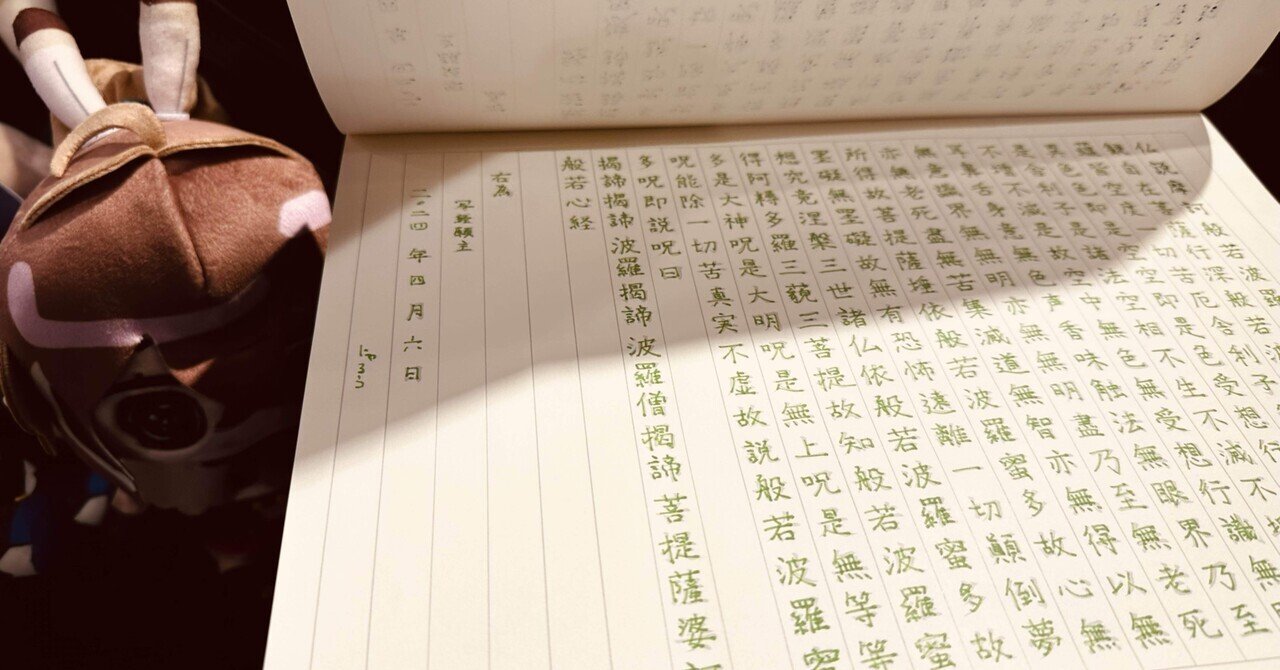 仏説摩訶般若波羅
観自在菩薩行深般若波
蘊皆空度一切苦厄舎利子
異色色即是空空即是色受想行
是舎利子是諸法空相不生不滅不
不増不減是故空中無色無受想行識無
耳鼻舌身意無色声香味触法無眼界乃至
無意識界無無明亦無無明盡乃至無老死
亦無老死盡無苦集滅道無智亦無得以無
所得故菩提薩埵依般若波羅蜜多故心無
罣礙無罣礙故無有恐怖遠離一切顛倒夢
想究竟涅槃三世諸仏依般若波羅蜜多故
得阿耨多羅三藐三菩提故知般若波羅蜜
多是大神呪是大明呪是無上呪是無等等
呪能除一切苦真実不虚故説般若波羅蜜
多呪即説呪曰
揭諦揭諦波羅揭諦波羅僧揭諦菩提薩婆
般若心経
右為
写経願主
二〇二四年四月六日